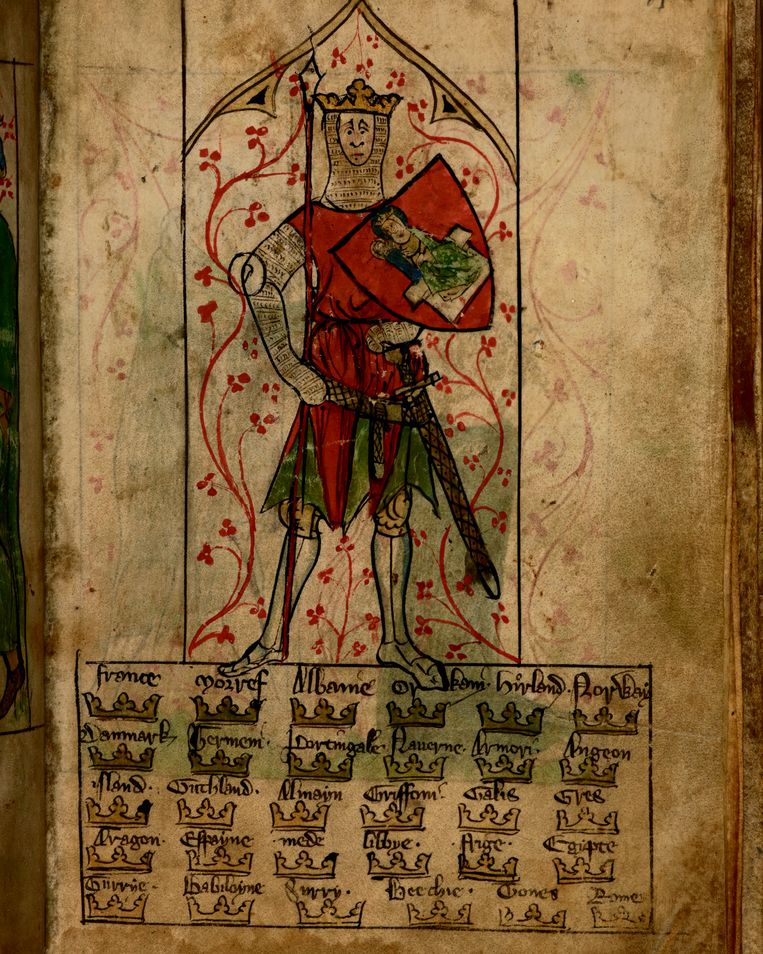 france norref Albanie Orkani hirland Norway
Danmark Germeni Portingale Nauerne Armori Angeon
island Guthland Almayn Griffoni Galis Gres
Aragon Espayne mede libye Arge Egipte
Surrye Babiloyne Surry Grece